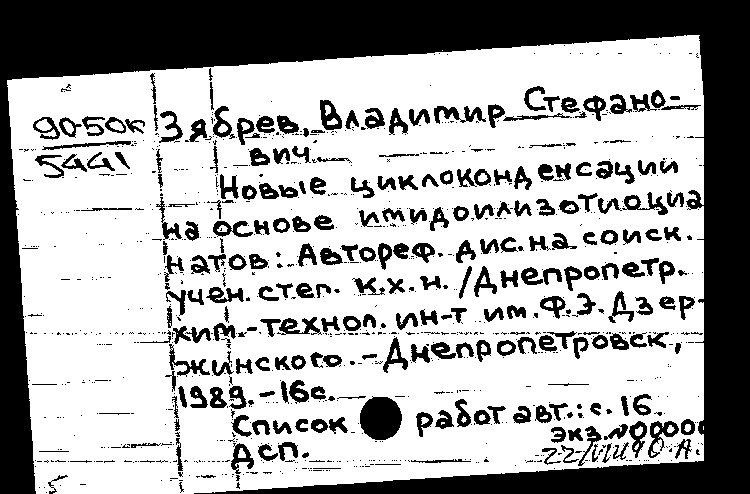 90-50к
5441
Зябрев, Владимир Стефано-
вич.
Новые циклоконденсации
на основе имидоилизотиоциа
натов: Автореф. дис. на соиск.
учен. степ. к.х.н. /Днепропетр.
хим.-технол. ин-т им. Ф.Э. Дзер-
жинского. - Днепропетровск,
1989. - 16с.
Список работ авт.: с. 16.
Экз. №00000
Дсп.